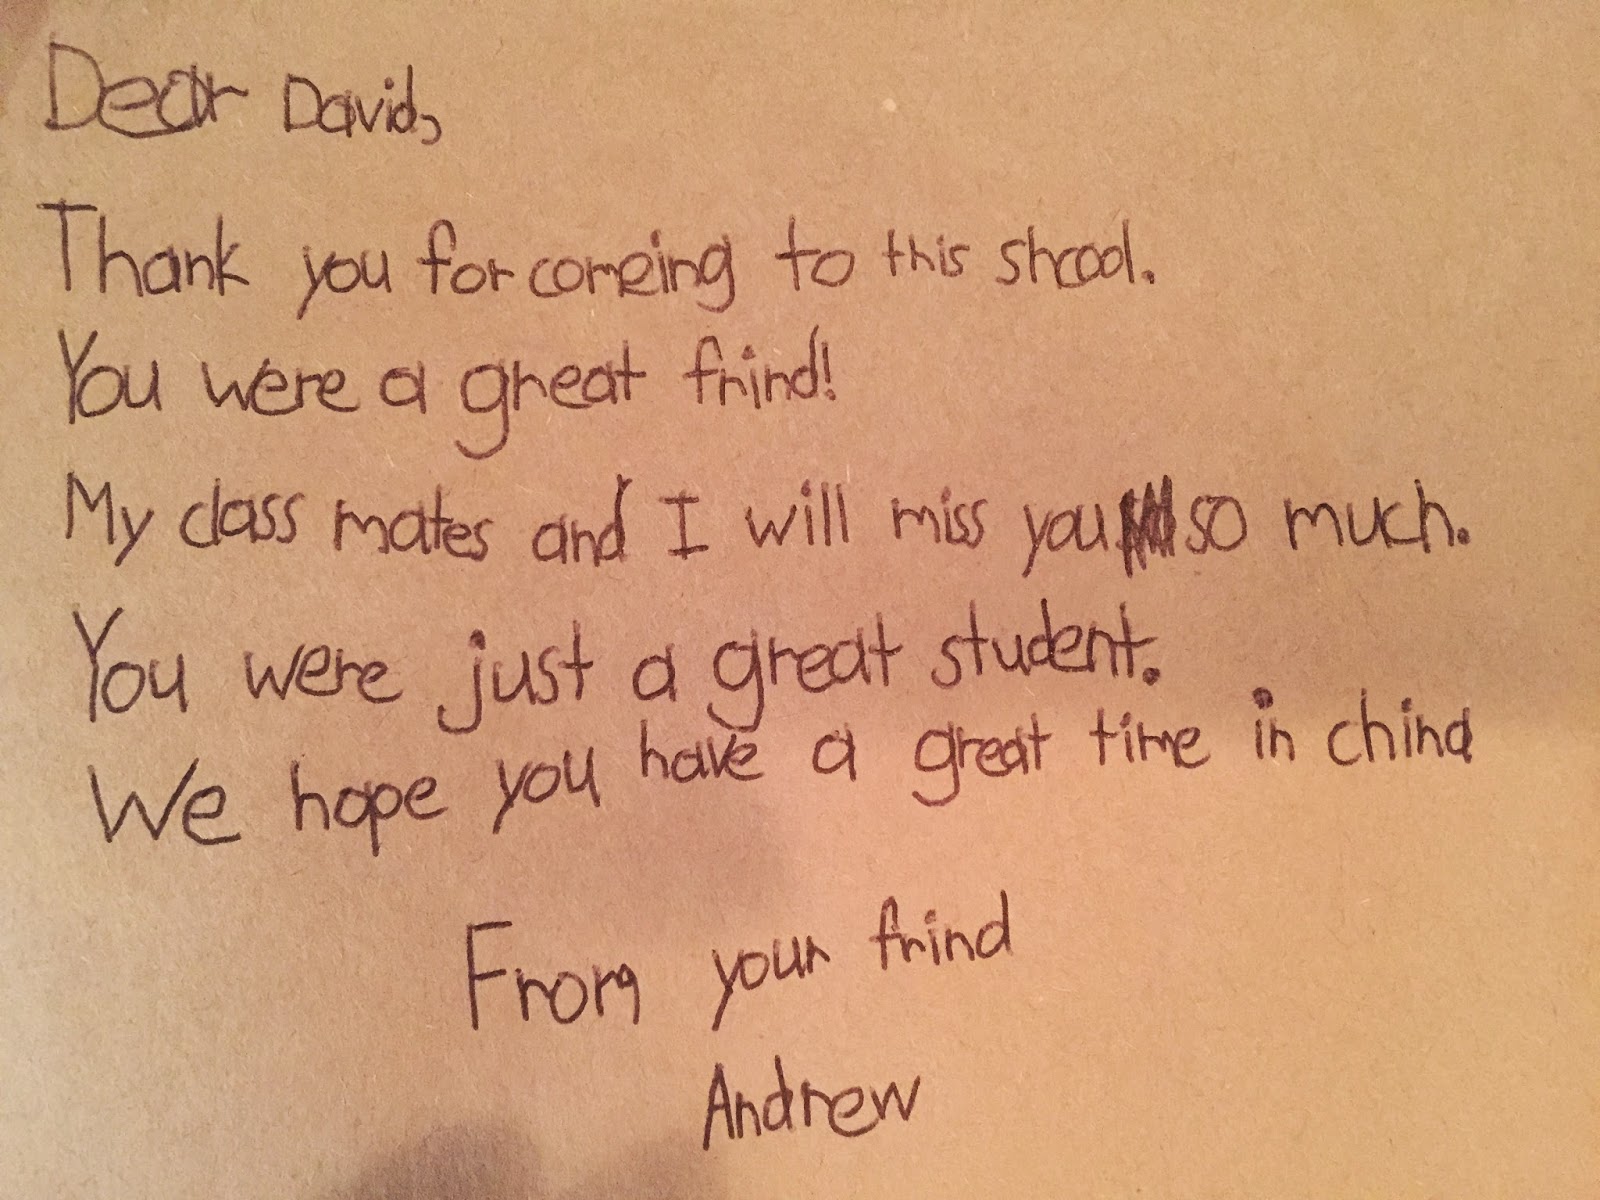 Dear David,
Thank you for comeing to this shcool.
You were a great frind!
My class mates and I will miss you so much.
You were just a great student.
We hope you have a great time in china
From your frind
Andrew